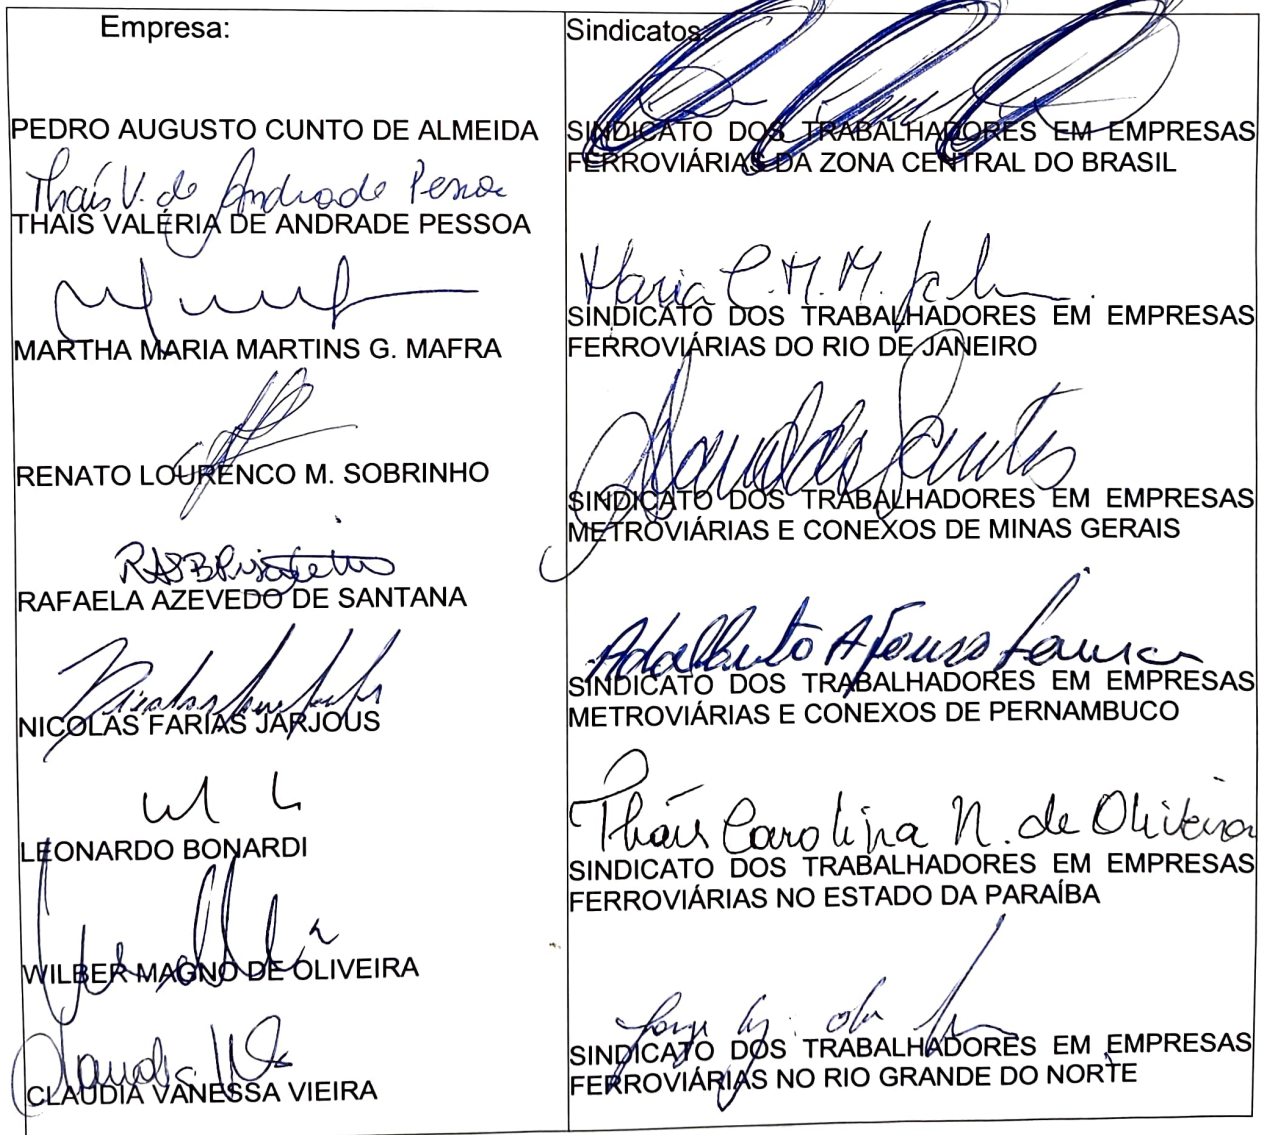 Empresa:
PEDRO AUGUSTO CUNTO DE ALMEIDA
Thaís V. de Andrade Pessoa
THAIS VALÉRIA DE ANDRADE PESSOA
MARTHA MARIA MARTINS G. MAFRA
RENATO LOURENCO M. SOBRINHO
RAFAELA AZEVEDO DE SANTANA
NICOLAS FARIAS JARJOUS
LEONARDO BONARDI
WILBER MAGNO DE OLIVEIRA
CLAUDIA VANESSA VIEIRA
Sindicatos:
SINDICATO DOS TRABALHADORES EM EMPRESAS
FERROVIÁRIAS DA ZONA CENTRAL DO BRASIL
Maria C. M. M.
SINDICATO DOS TRABALHADORES EM EMPRESAS
FERROVIÁRIAS DO RIO DE JANEIRO
Santos
SINDICATO DOS TRABALHADORES EM EMPRESAS
METROVIÁRIAS E CONEXOS DE MINAS GERAIS
Adalberto Afonso
SINDICATO DOS TRABALHADORES EM EMPRESAS
METROVIÁRIAS E CONEXOS DE PERNAMBUCO
Tháis Carolina N. de Oliveira
SINDICATO DOS TRABALHADORES EM EMPRESAS
FERROVIÁRIAS NO ESTADO DA PARAÍBA
SINDICATO DOS TRABALHADORES EM EMPRESAS
FERROVIÁRIAS NO RIO GRANDE DO NORTE